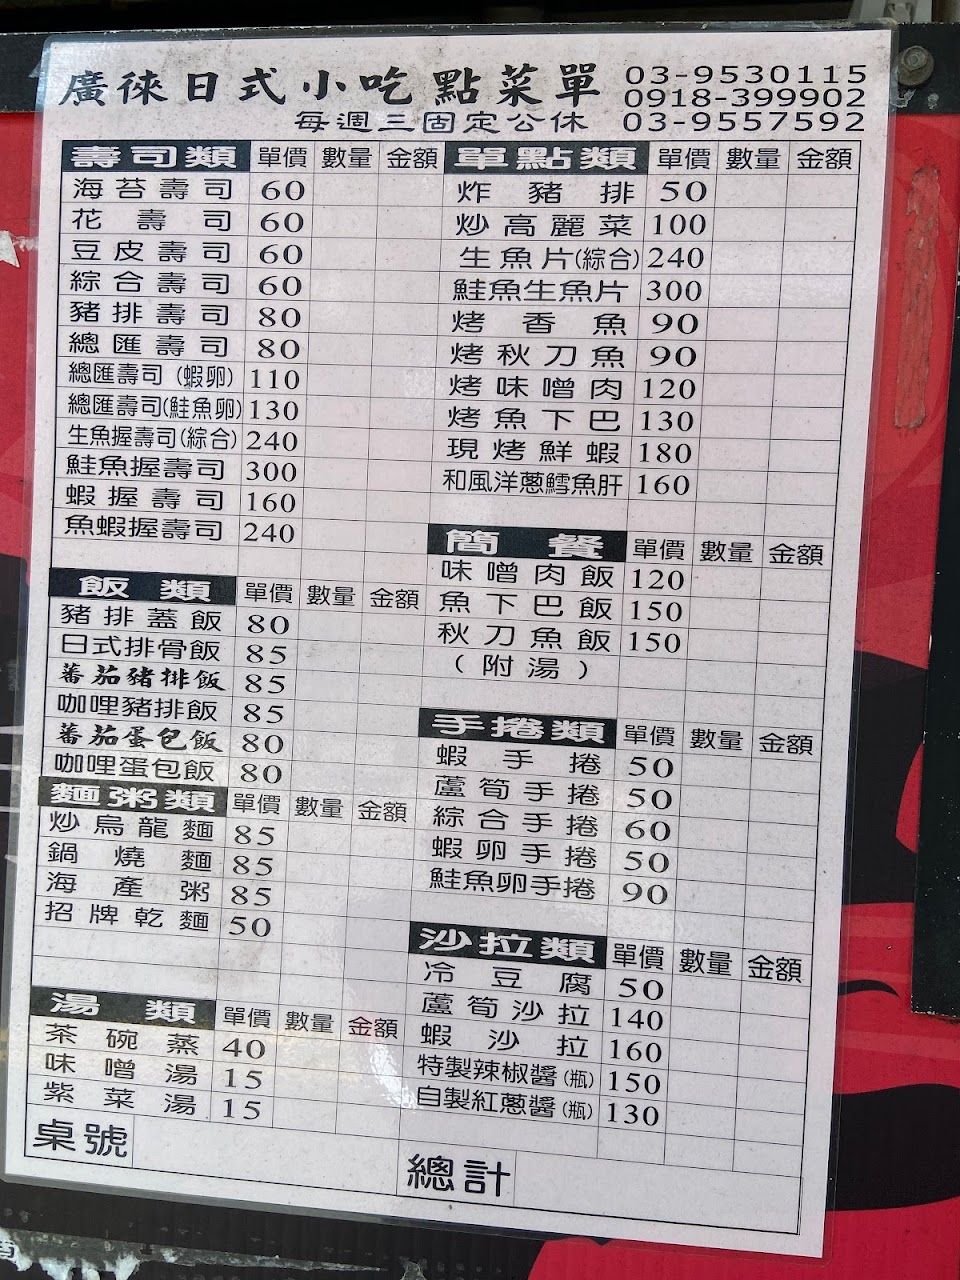 廣徠日式小吃點菜單
03-9530115
0918-399902
每週三固定公休
03-9557592
壽司類 單價 數量 金額
海苔壽司 60
花壽司 60
豆皮壽司 60
綜合壽司 60
豬排壽司 80
總匯壽司 80
總匯壽司(蝦卵) 110
總匯壽司(鮭魚卵) 130
生魚握壽司(綜合) 240
鮭魚握壽司 300
蝦握壽司 160
魚蝦握壽司 240
飯類 單價 數量 金額
豬排蓋飯 80
日式排骨飯 85
蕃茄豬排飯 85
咖哩豬排飯 85
蕃茄蛋包飯 80
咖哩蛋包飯 80
麵粥類 單價 數量 金額
炒烏龍麵 85
鍋燒麵 85
海產粥 85
招牌乾麵 50
湯類 單價 數量 金額
茶碗蒸 40
味噌湯 15
紫菜湯 15
桌號
單點類 單價 數量 金額
炸豬排 50
炒高麗菜 100
生魚片(綜合) 240
鮭魚生魚片 300
烤香魚 90
烤秋刀魚 90
烤味噌肉 120
烤魚下巴 130
現烤鮮蝦 180
和風洋蔥鱈魚肝 160
簡餐 單價 數量 金額
味噌肉飯 120
魚下巴飯 150
秋刀魚飯 150
(附湯)
手捲類 單價 數量 金額
蝦手捲 50
蘆筍手捲 50
綜合手捲 60
蝦卵手捲 50
鮭魚卵手捲 90
沙拉類 單價 數量 金額
冷豆腐 50
蘆筍沙拉 140
蝦沙拉 160
特製辣椒醬(瓶) 150
自製紅蔥醬(瓶) 130
總計